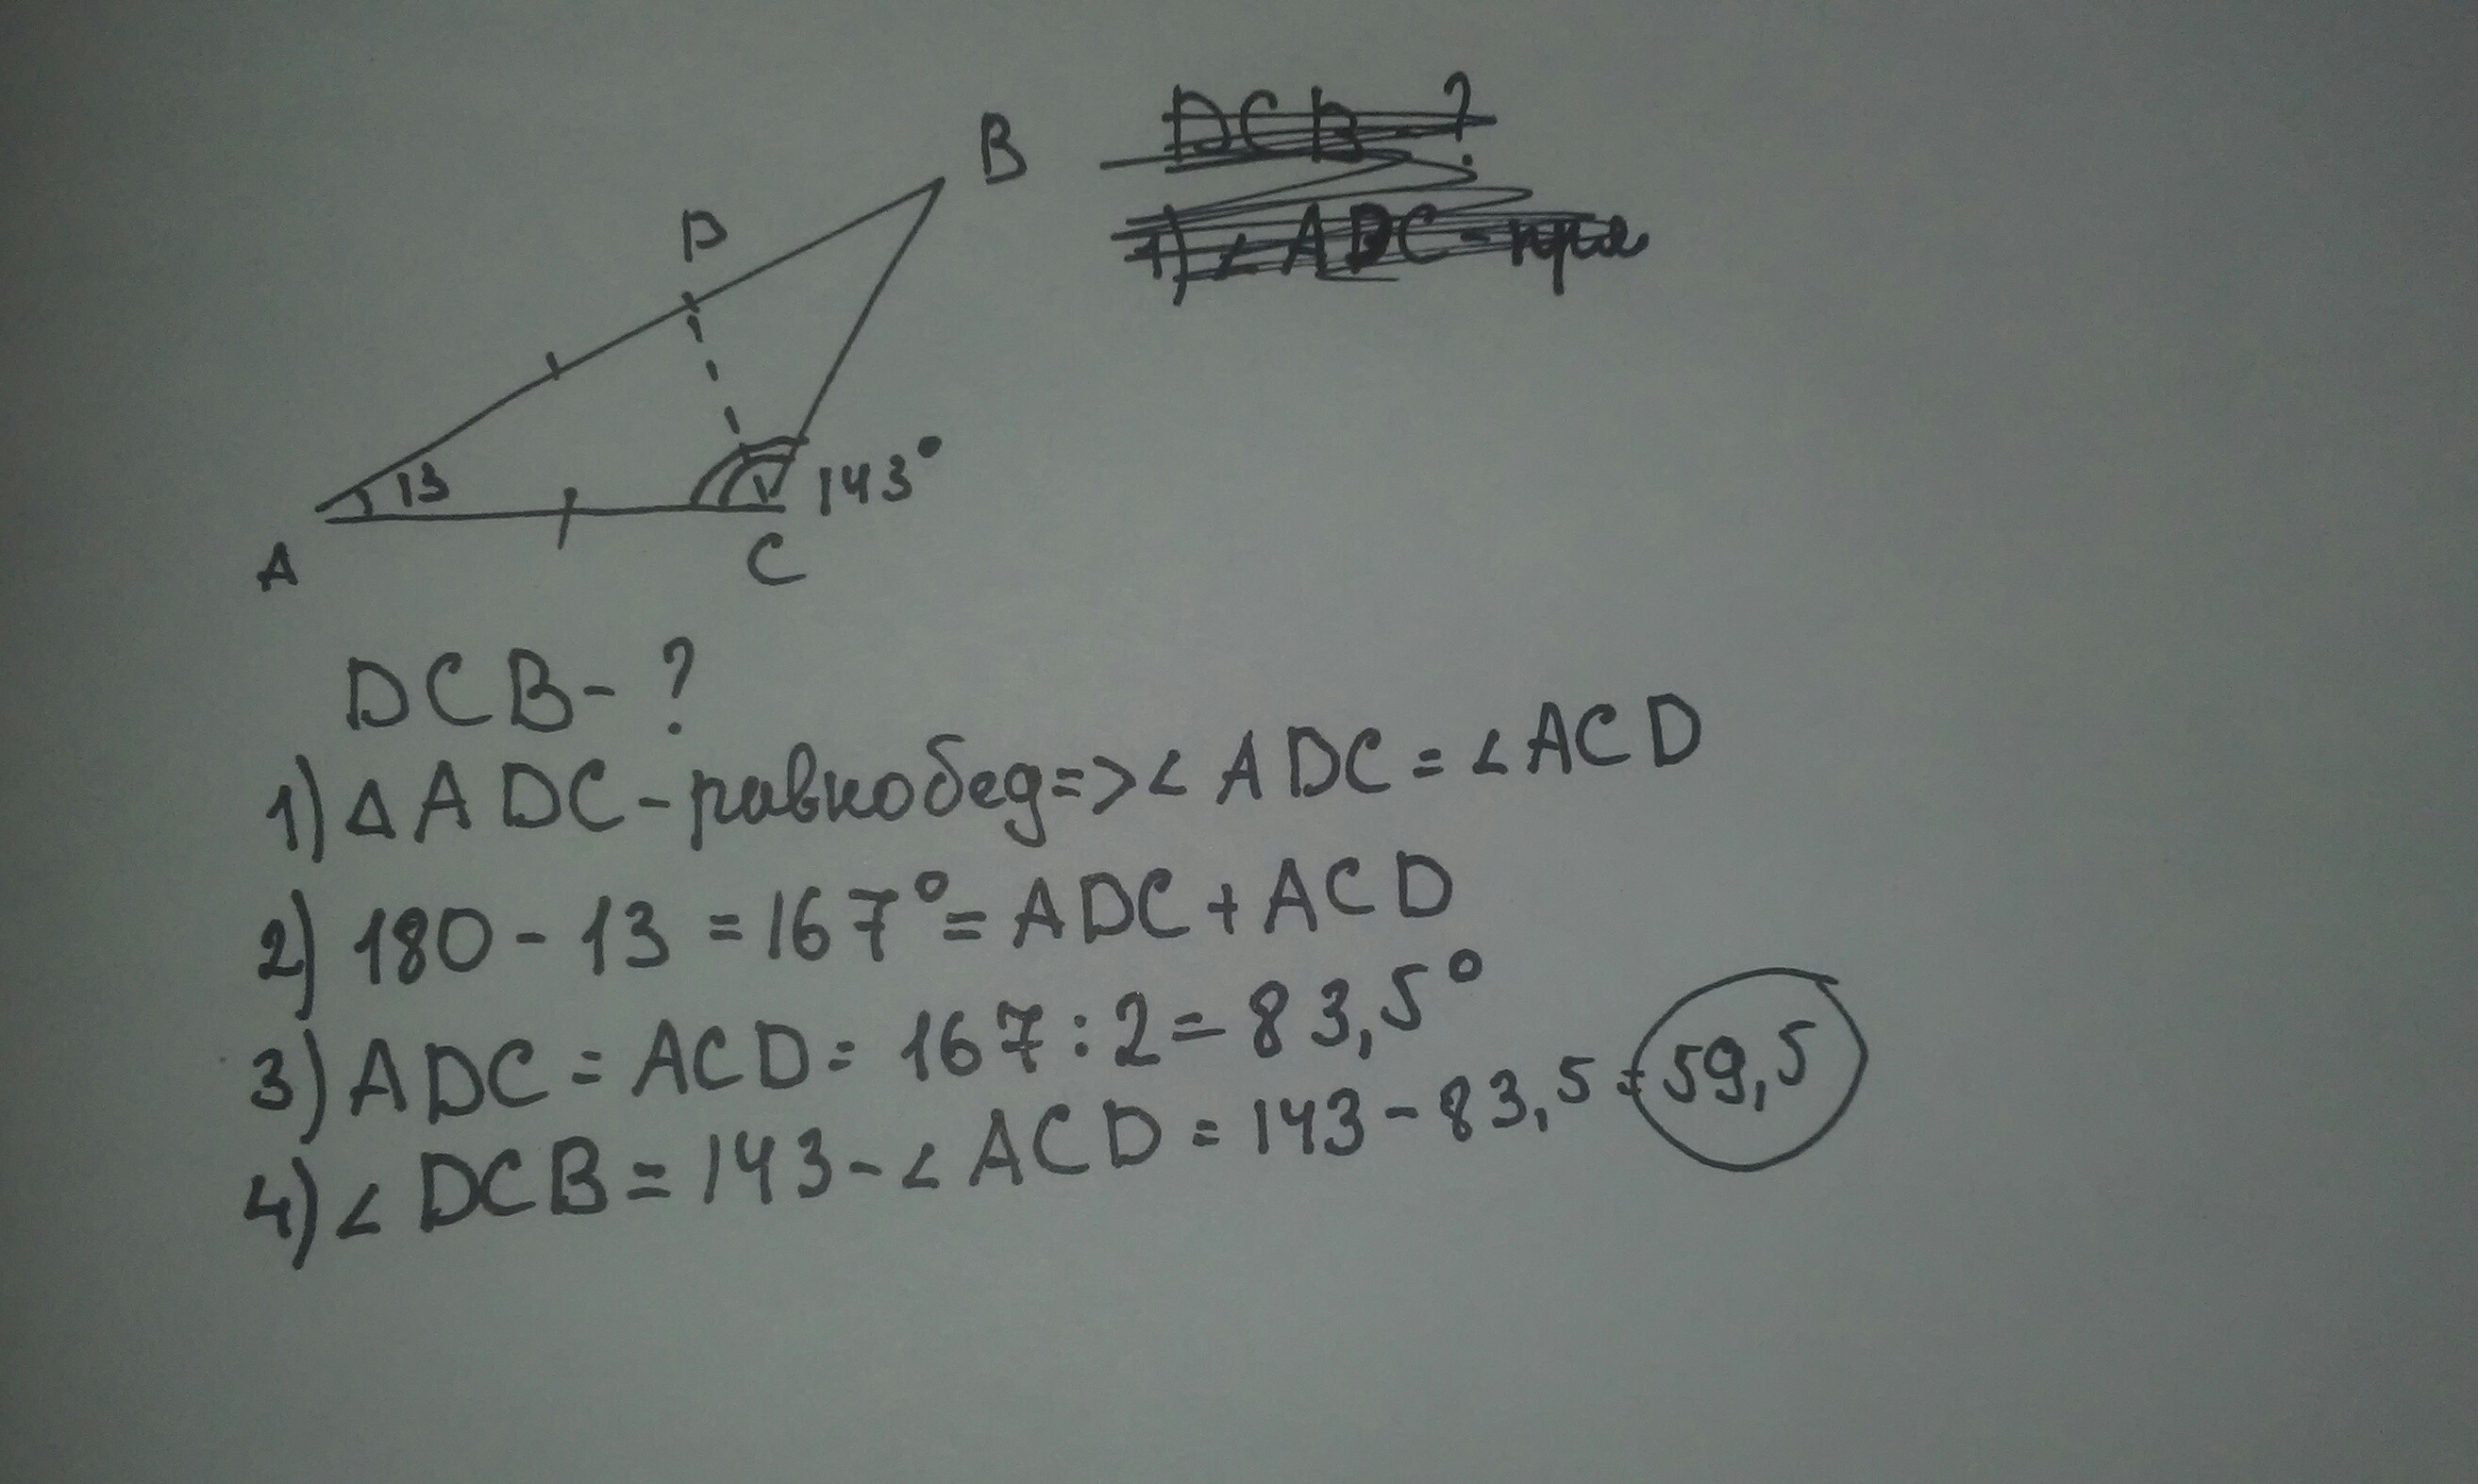 B
D
13
143°
A
C
DCB-?
1) ∠ADC-
DCB-?
1) ΔADC-равнобед=>∠ADC=∠ACD
2) 180-13=167°=ADC+ACD
3) ADC=ACD=167:2=83,5°
4) ∠DCB=143-∠ACD=143-83,5=59,5